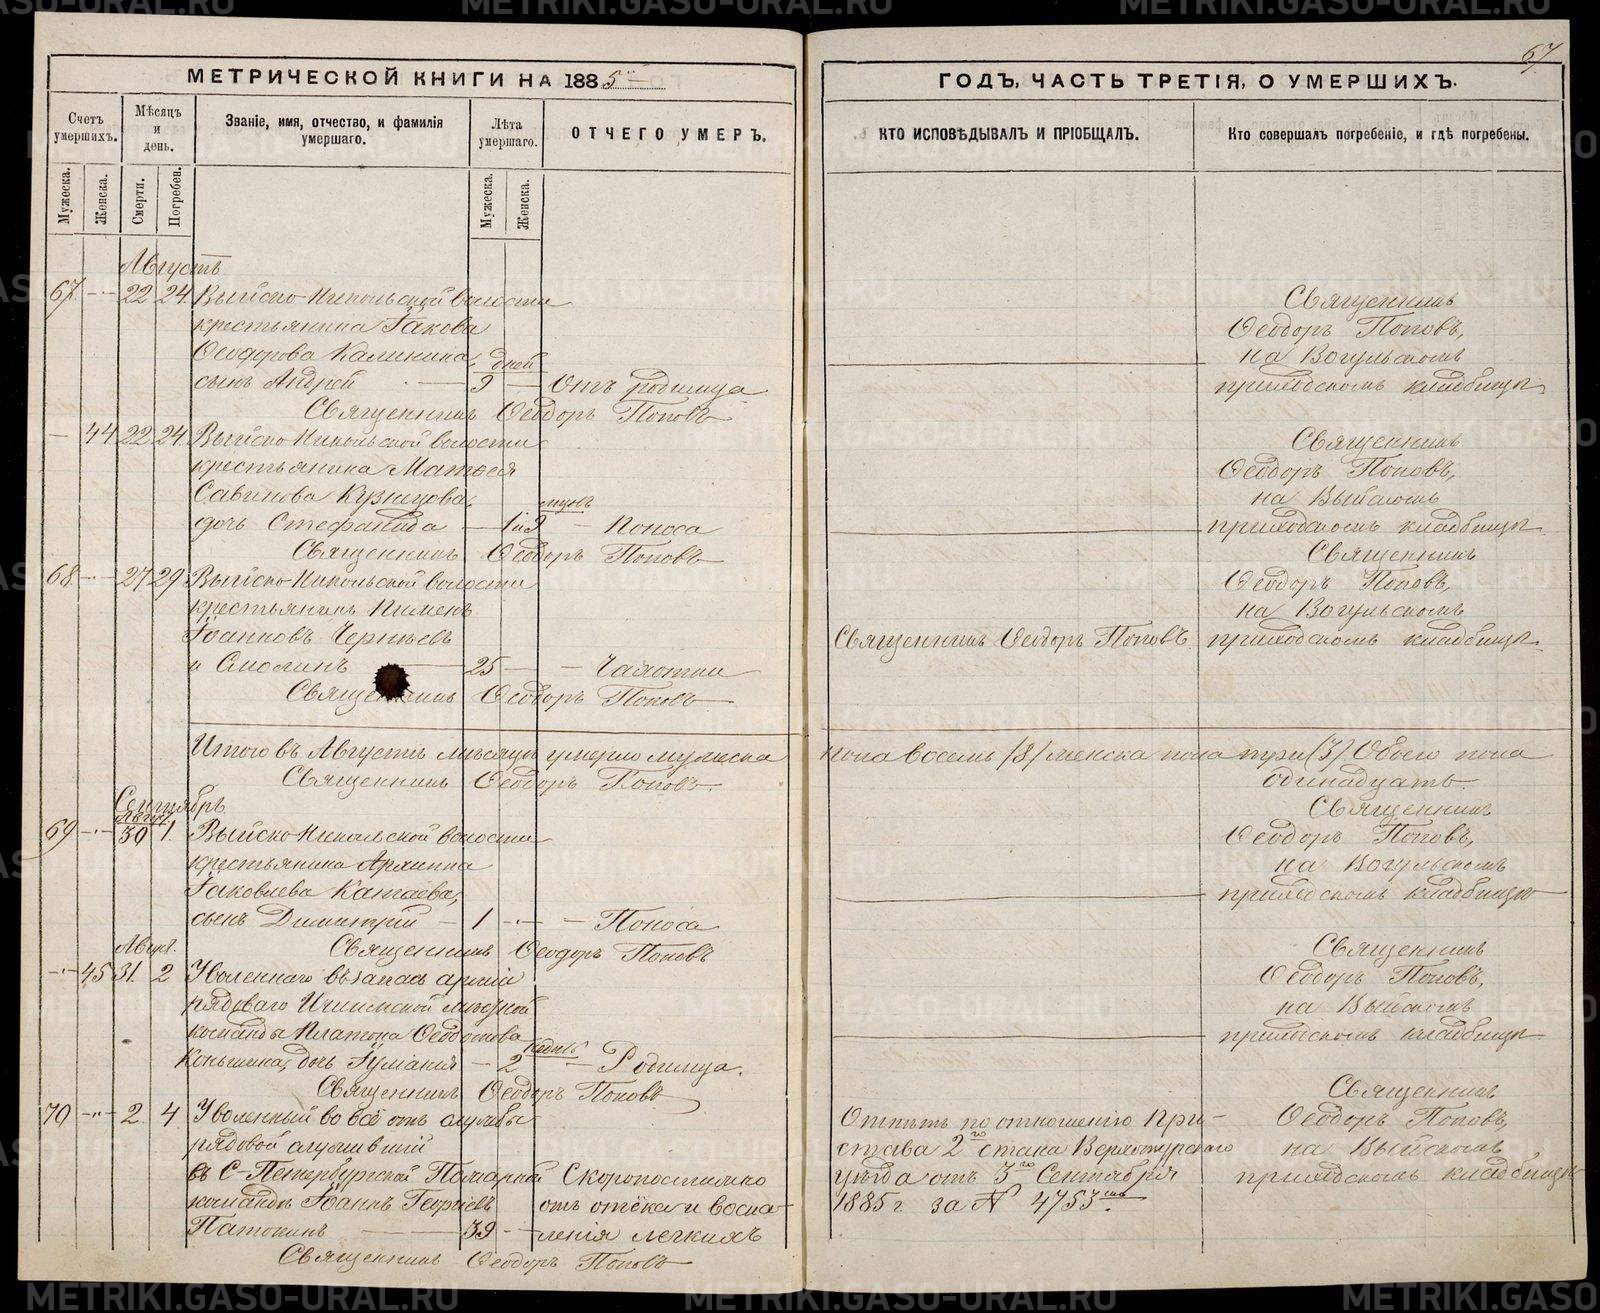 67
МЕТРИЧЕСКОЙ КНИГИ НА 1885й
ГОДЪ, ЧАСТЬ ТРЕТІЯ, О УМЕРШИХЪ.
Счетъ умершихъ.
Мѣсяцъ и день.
Званіе, имя, отчество, и фамилія умершаго.
Лѣта умершаго.
ОТЧЕГО УМЕРЪ.
КТО ИСПОВѢДЫВАЛЪ И ПРІОБЩАЛЪ.
Кто совершалъ погребеніе, и гдѣ погребены.
Мужеска.
Женска.
Смерти.
Погребен.
Мужеска.
Женска.
Августъ
67 22 24 Выйско-Никольской волости
крестьянина Іакова
Ѳеодорова Калинина, дней
сынъ Андрей 9 Отъ родимца
Священникъ Ѳеодоръ Поповъ
Священникъ
Ѳеодоръ Поповъ,
на Вогульскомъ
приходскомъ кладбищѣ
44 22 24 Выйско-Никольской волости
крестьянина Матѳея
Савинова Кузнецова,
дочь Стефанида 1 и 9 Поноса
Священникъ Ѳеодоръ Поповъ
Священникъ
Ѳеодоръ Поповъ,
на Выйскомъ
приходскомъ кладбищѣ
68 27 29 Выйско-Никольской волости
крестьянинъ Пименъ
Іоанновъ Черныевъ
и Смолинъ 25 Чахотки
Священникъ Ѳеодоръ Поповъ
Священникъ Ѳеодоръ Поповъ
Священникъ
Ѳеодоръ Поповъ,
на Вогульскомъ
приходскомъ кладбищѣ
Итого въ Августѣ мѣсяцѣ умерло мужеска пола восемь (8) женска пола три (3) Обоего пола
одинадцать
Священникъ Ѳеодоръ Поповъ
Сентябрь
Август.
69 30 1. Выйско-Никольской волости
крестьянина Архиппа
Іаковлева Катаева,
сынъ Димитрій 1 Поноса
Священникъ Ѳеодоръ Поповъ
Священникъ
Ѳеодоръ Поповъ,
на Вогульскомъ
приходскомъ кладбищѣ
Август.
45 31. 2 Уволеннаго въ запасъ арміи
рядоваго Ишимской мѣстной
команды Платона Ѳеодосіева недѣли
Коньшина, дочь Іуліанія 2 Родимца.
Священникъ Ѳеодоръ Поповъ
Священникъ
Ѳеодоръ Поповъ,
на Выйскомъ
приходскомъ кладбищѣ
70 2. 4 Уволенный во всё отъ службы
рядовой служившій
въ С-Петербургской Пожарной Скоропостижно
командѣ Іоаннъ Георгіевъ отъ отёка и воспа-
Патокинъ 39 ленія легкихъ
Священникъ Ѳеодоръ Поповъ
Отпѣтъ по отношенію При-
става 2го стана Верхотурскаго
уѣзда отъ 3го Сентября
1885 г за № 4753мъ
Священникъ
Ѳеодоръ Поповъ,
на Выйскомъ
приходскомъ кладбищѣ
METRIKI.GASO-URAL.RU